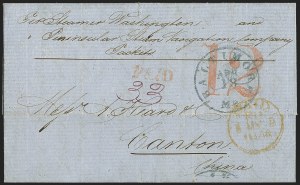 Per Steamer Washington and
Peninsular Steam Navigation Company
Packet
PAID
BALTIMORE
APR
Md.
Mess. A. Heard & Co.
Canton
China